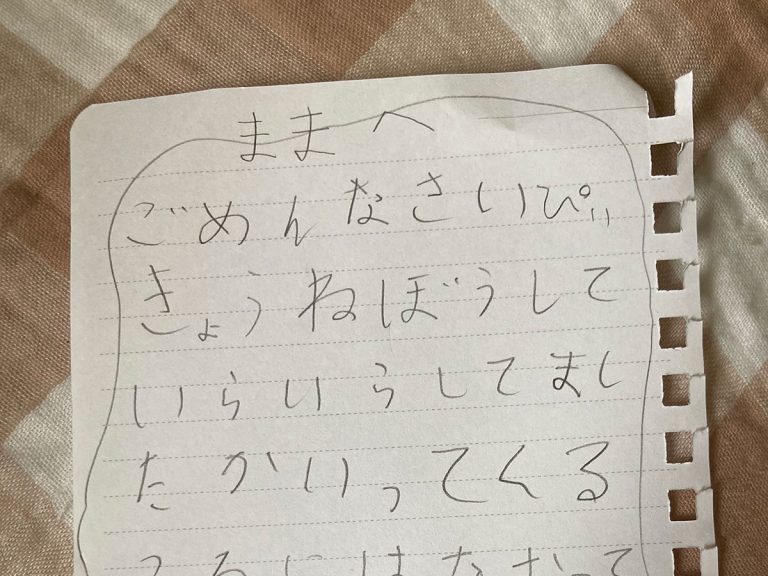 ままへ
ごめんなさいぴぃ
きょうねぼうして
いらいらしてまし
たかいってくる